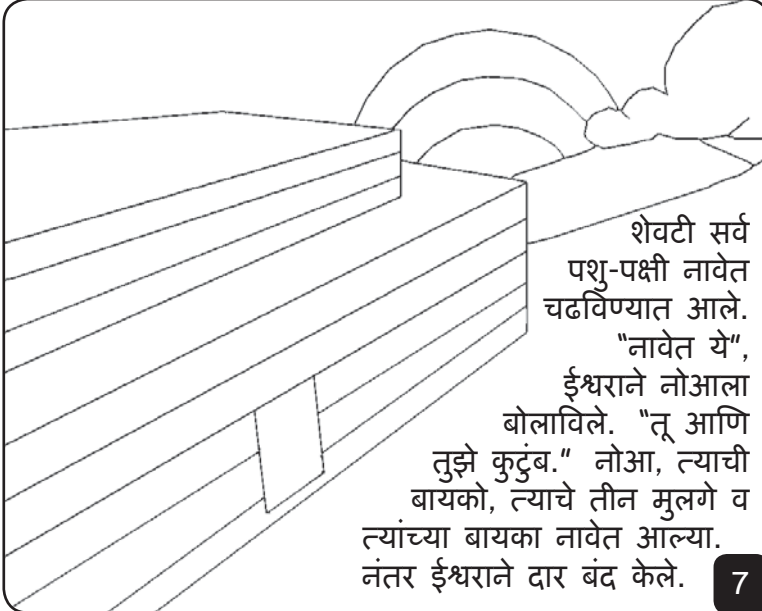 शेवटी सर्व
पशु-पक्षी नावेत
चढविण्यात आले.
"नावेत ये",
ईश्वराने नोआला
बोलाविले. "तू आणि
तुझे कुटुंब." नोआ, त्याची
बायको, त्याचे तीन मुलगे व
त्यांच्या बायका नावेत आल्या.
नंतर ईश्वराने दार बंद केले.
7